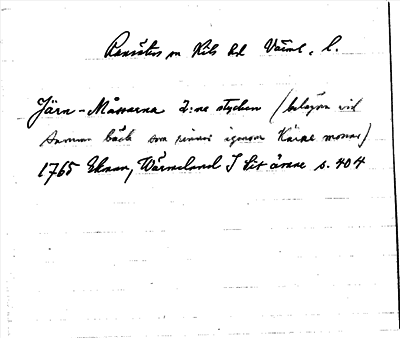 Ransäters sn Kils hd Värml. l.
Järn-Måssarna 2:ne stycken (belägna vid
samma bäck som rinner igenom Kärne monar)
1765 Ekman, Wärmeland I sit ämne s. 404